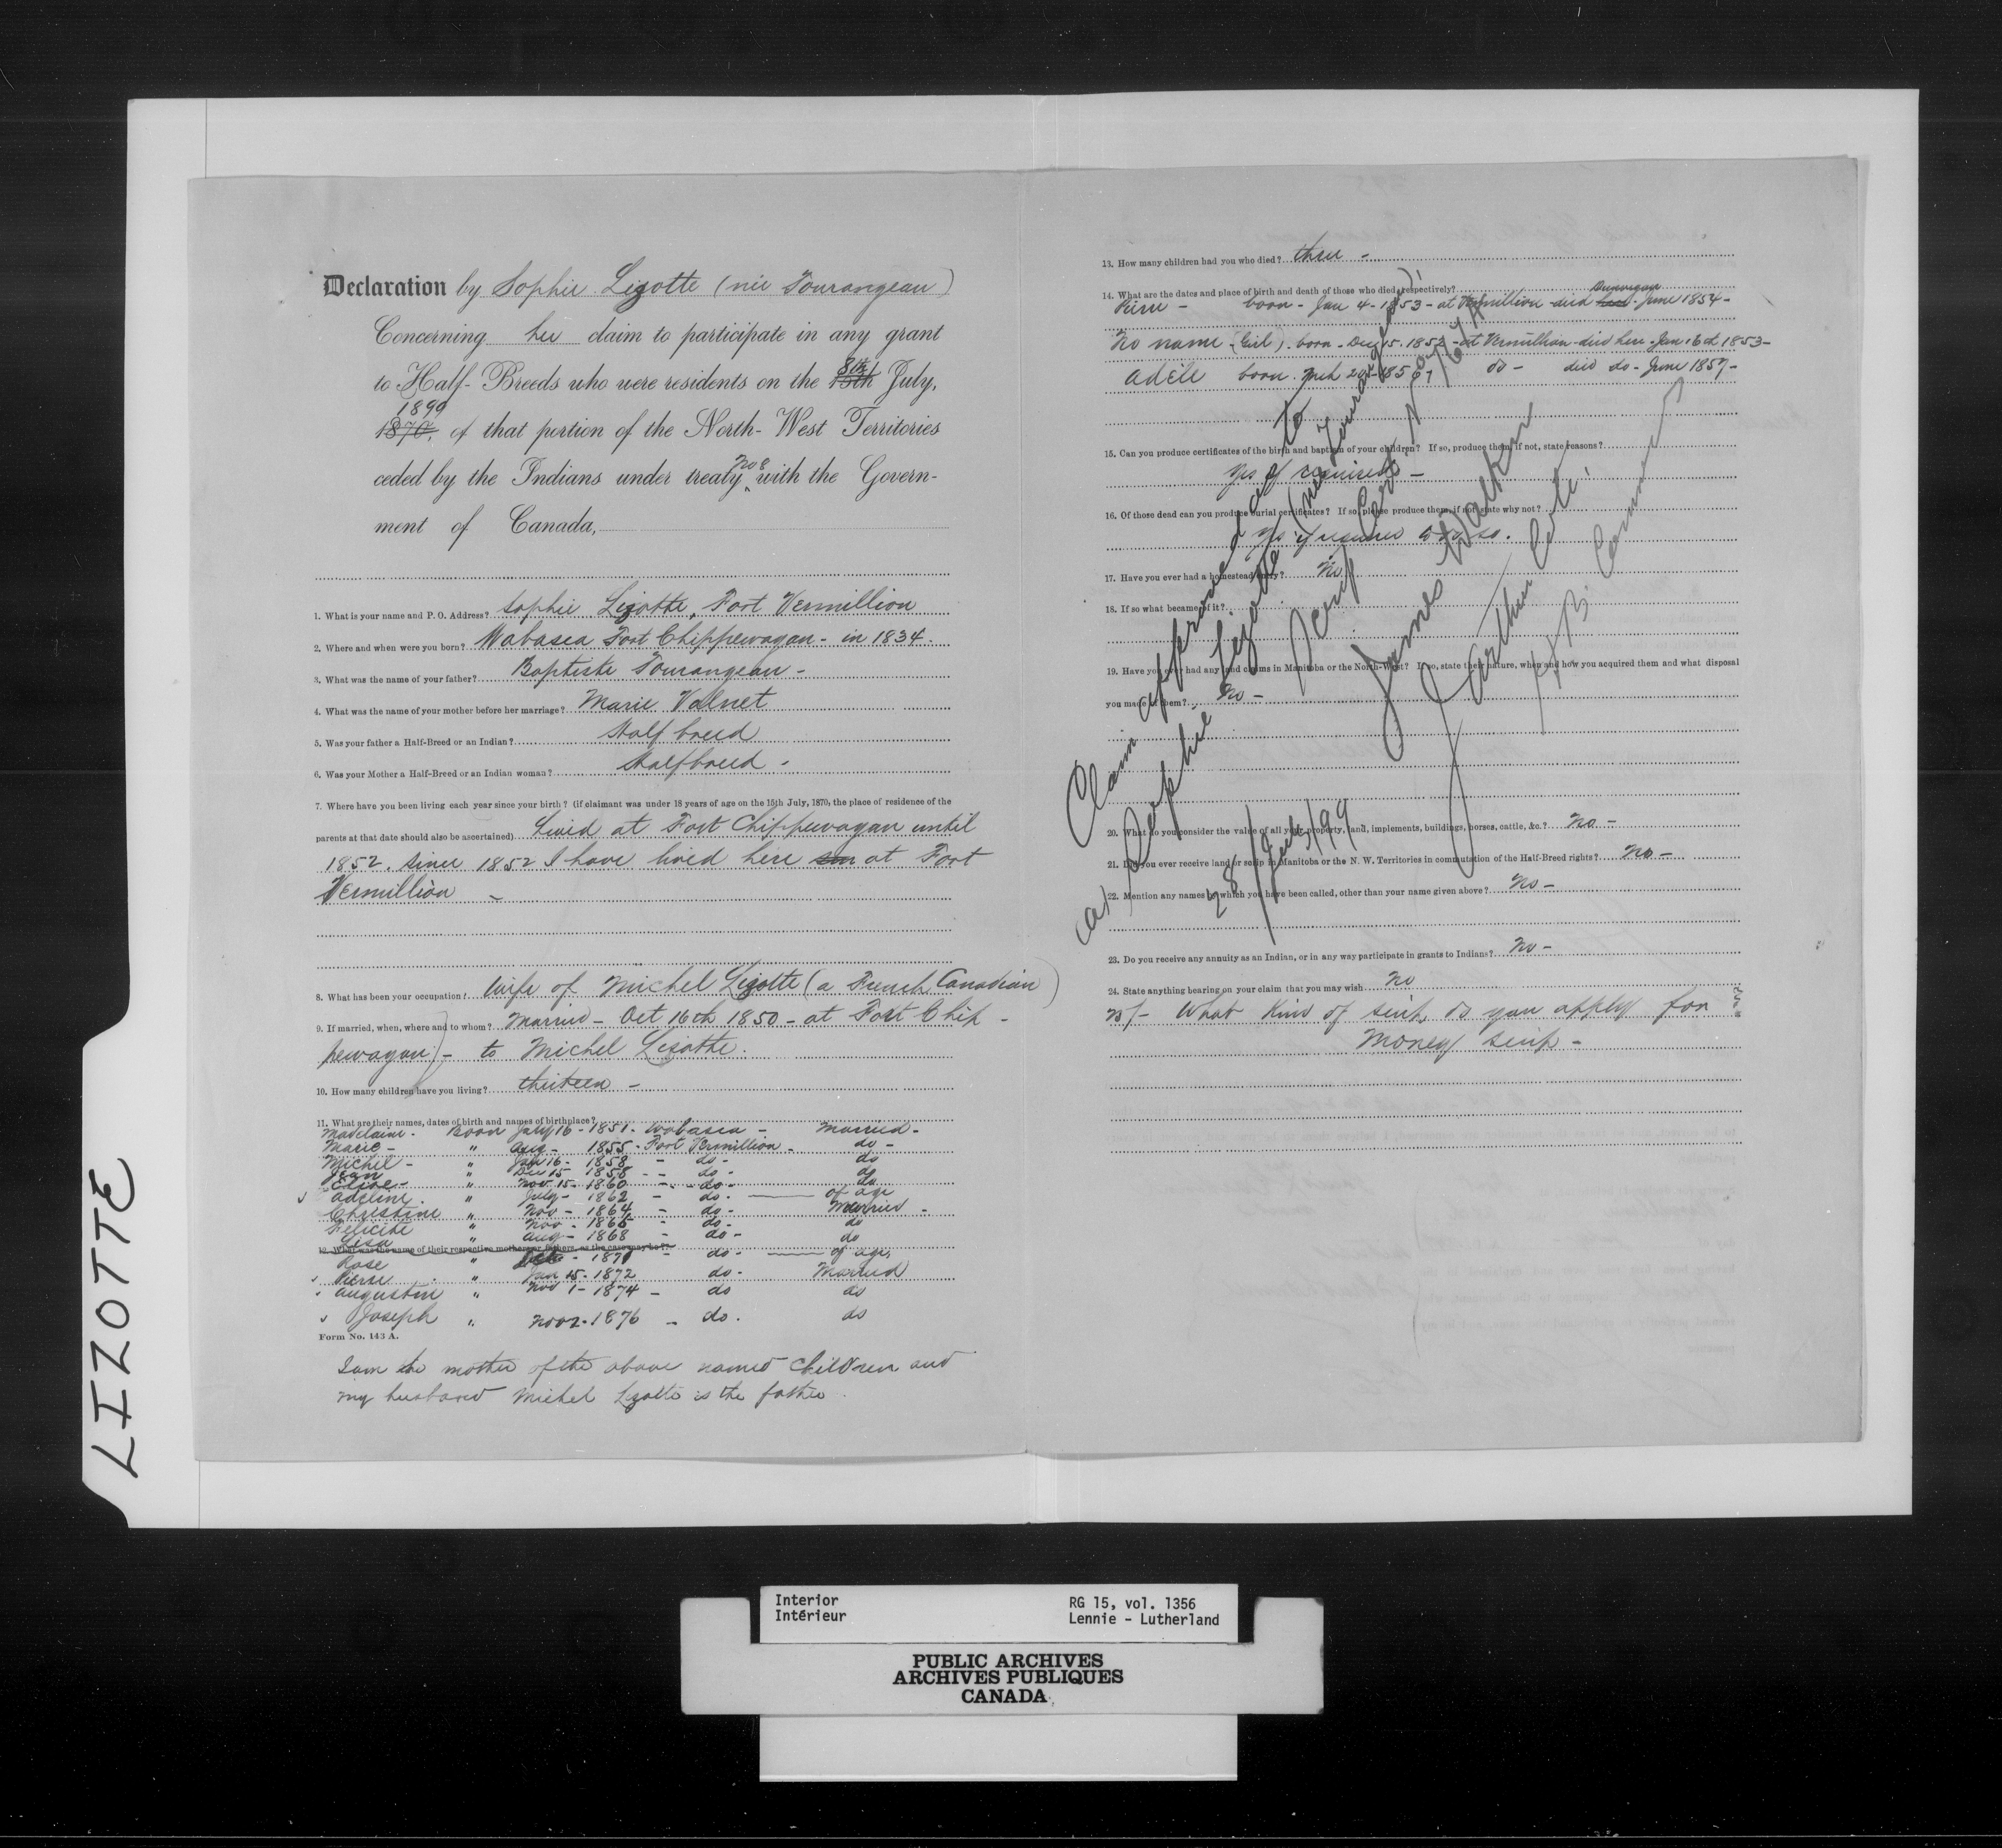 LIZOTTE
Declaration by Sophie Lizotte (née Tourangeau)
Concerning her claim to participate in any grant
to Half-Breeds who were residents on the 15th 8th July,
1870, 1899 of that portion of the North-West Territories
ceded by the Indians under treaty No 8 with the Govern-
ment of Canada,
1. What is your name and P. O. Address? Sophie Lizotte, Fort Vermillion
2. Where and when were you born? Wabasca Fort Chippewayan - in 1834.
3. What was the name of your father? Baptiste Tourangeau -
4. What was the name of your mother before her marriage? Marie Valnet
5. Was your father a Half-Breed or an Indian? Half breed
6. Was your Mother a Half-Breed or an Indian woman? Halfbreed -
7. Where have you been living each year since your birth? (if claimant was under 18 years of age on the 15th July, 1870, the place of residence of the
parents at that date should also be ascertained) Lived at Fort Chippewayan until
1852. Since 1852 I have lived here at Fort
Vermillion -
8. What has been your occupation? Wife of Michel Lizotte (a French Canadian)
9. If married, when, where and to whom? Married - Oct 16th 1850 - at Fort Chip-
pewayan) - to Michel Lizotte.
10. How many children have you living? thirteen -
11. What are their names, dates of birth and names of birthplace?
Madelaine - Born July 16 - 1851 - Wabasca - Married -
Marie - " Aug - 1855 - Fort Vermillion - do -
Michel - " Jan 16 - 1858 - do - do
Jean " Dec 15 - 1858 - do - do
Elise - " Nov 15 - 1860 - do - do
Adeline - " July - 1862 - do - of age
Christine " Nov - 1864 - do - Married -
Felicité " Nov - 1866 - do - do
Lisa " Aug - 1868 - do - do
12. What was the name of their respective mothers or fathers, as the case may be?
Rose " 1870 - do - of age
Pierre " Jan 15 - 1872 do - Married
Augustin " Nov 1 - 1874 - do do
Joseph " Nov 2 - 1876 - do - do
Form No. 143 A.
I am the mother of the above named children and
my husband Michel Lizotte is the father.
13. How many children had you who died? three -
14. What are the dates and place of birth and death of those who died, respectively?
Pierre - born - Jan 4 - 1853 - at Vermillion - died Dunvegan - June 1854 -
No name (Girl) born - Dec 15. 1852 - at Vermillion - died here - Jan 16th 1853 -
Adèle born - Mch 20 - 1856 do - died do - June 1857 -
15. Can you produce certificates of the birth and baptism of your children? If so, produce them, if not, state reasons?
Yes if required -
16. Of those dead can you produce burial certificates? If so please produce them, if not state why not?
Yes if required to do so.
17. Have you ever had a homestead entry? No
18. If so what became of it?
19. Have you ever had any land claims in Manitoba or the North-West? If so, state their nature, when and how you acquired them and what disposal
you made of them? No -
20. What do you consider the value of all your property, land, implements, buildings, horses, cattle, &c.? No -
21. Did you ever receive land or scrip in Manitoba or the N. W. Territories in commutation of the Half-Breed rights? No -
22. Mention any names by which you have been called, other than your name given above? No -
23. Do you receive any annuity as an Indian, or in any way participate in grants to Indians? No -
24. State anything bearing on your claim that you may wish No
25/- What kind of scrip do you apply for ?
Money scrip -
Claim approved as to
Sophie Lizotte (née Tourangeau)
James Walker
J Arthur Coté
H B Commrs
Interior
Intérieur
RG 15, vol. 1356
Lennie - Lutherland
PUBLIC ARCHIVES
ARCHIVES PUBLIQUES
CANADA